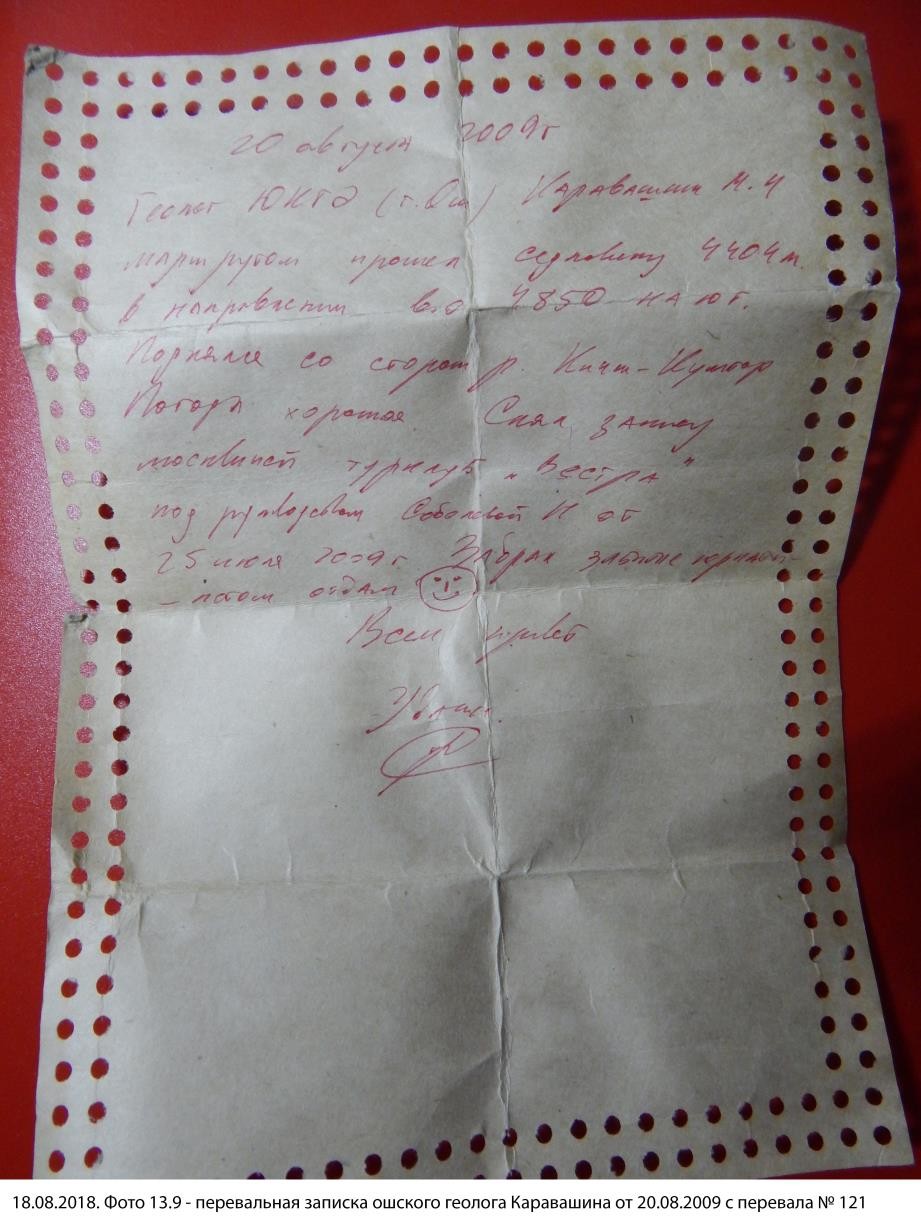 20 августа 2009г
Геолог ЮКГЭ (г. Ош) Каравашин М.Ч
маршрутом прошел седловину 4404м.
в направлении 4850 на юг.
Поднялся со стороны р. Кичи-Кумтор
Погода хорошая Снял записку
московской турклуб „Вестра"
под руководством Соболевой от
25 июля 2009г Забрал
- потом отдам
Всем привет
18.08.2018. Фото 13.9 - перевальная записка ошского геолога Каравашина от 20.08.2009 с перевала № 121